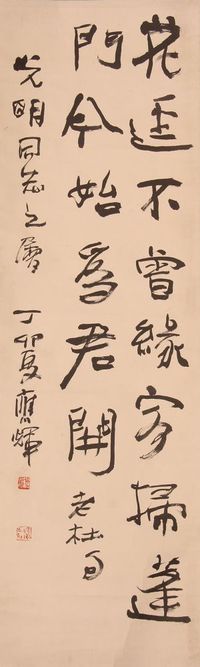 花迳不曾緣客掃蓬
門今始爲君開 老杜句
光明同志之屬 丁卯夏應輝